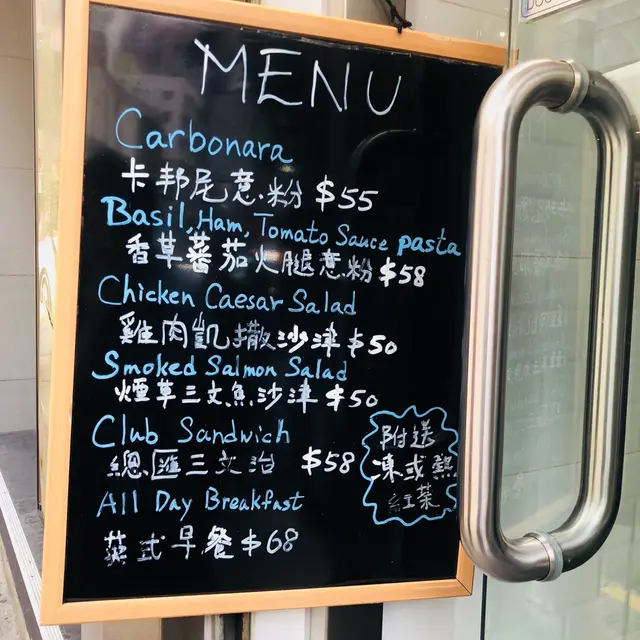 MENU
Carbonara
卡邦尾意粉 $55
Basil, Ham, Tomato Sauce pasta
香草蕃茄火腿意粉 $58
Chicken Caesar Salad
雞肉凱撒沙津 $50
Smoked Salmon Salad
煙草三文魚沙津 $50
Club Sandwich
總匯三文治 $58
All Day Breakfast
英式早餐 $68
附送
凍或熱
紅茶